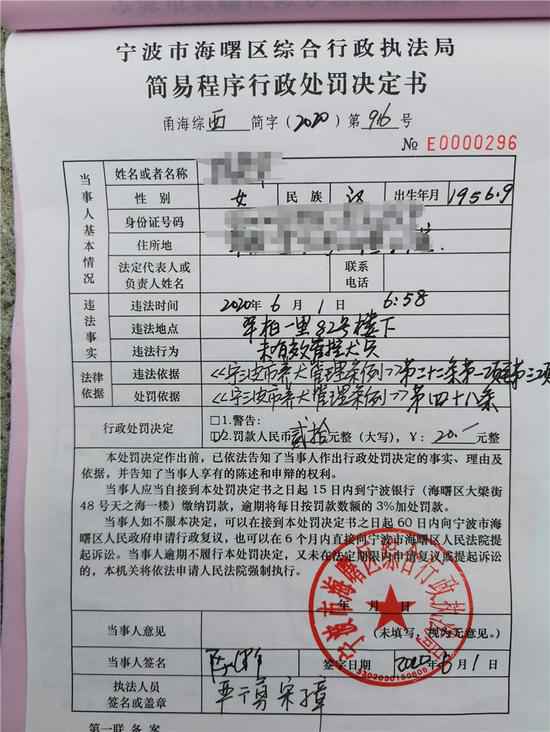 宁波市海曙区综合行政执法局
简易程序行政处罚决定书
甬海综 西 简字（2020）第 96 号
№ E0000296
当事人基本情况
姓名或者名称
性别 女 民族 汉 出生年月 1956.9
身份证号码
住所地
法定代表人或负责人姓名 联系电话
违法事实
违法时间 2020年 6 月 1 日 6:58
违法地点 一里82号楼下
违法行为 未有效管控犬只
法律依据
违法依据 《宁波市养犬管理条例》第二十二条第一项第三项
处罚依据 《宁波市养犬管理条例》第四十八条
行政处罚决定
□1.警告；
☑2.罚款人民币 贰拾 元整（大写），¥： 20.- 元整
本处罚决定作出前，已依法告知了当事人作出行政处罚决定的事实、理由及
依据，并告知了当事人享有的陈述和申辩的权利。
当事人应当自接到本处罚决定书之日起 15 日内到宁波银行（海曙区大梁街
48 号天之海一楼）缴纳罚款，逾期将每日按罚款数额的 3%加处罚款。
当事人如不服本决定，可以在接到本处罚决定书之日起 60 日内向宁波市海
曙区人民政府申请行政复议，也可以在 6 个月内直接向宁波市海曙区人民法院提
起诉讼。当事人逾期不履行本处罚决定，又未在法定期限内申请复议或提起诉讼
的，本机关将依法申请人民法院强制执行。
年 月 日
宁波市海曙区综合行政执法局
当事人意见 （未填写，视为无意见。）
当事人签名 签字日期 2020年 6 月 1 日
执法人员
签名或盖章
第一联 备案